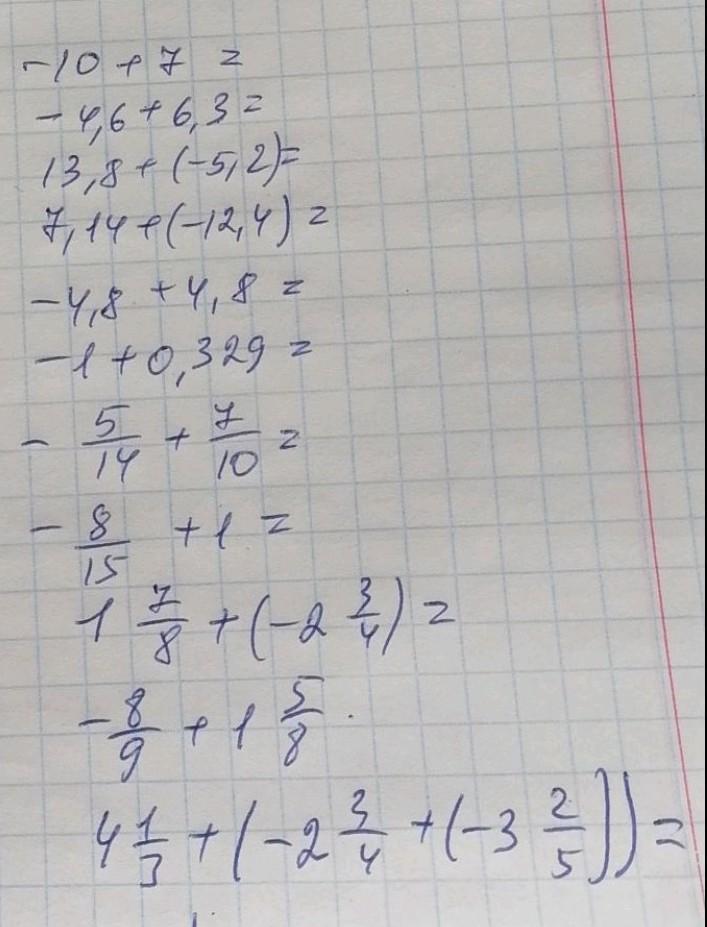 -10 + 7 =
- 4,6 + 6,3 =
13,8 + (-5,2) =
7,14 + (-12,4) =
-4,8 + 4,8 =
-1 + 0,329 =
- 5/14 + 7/10 =
- 8/15 + 1 =
1 7/8 + (-2 3/4) =
- 8/9 + 1 5/8 .
4 1/3 + (-2 3/4 + (-3 2/5)) =